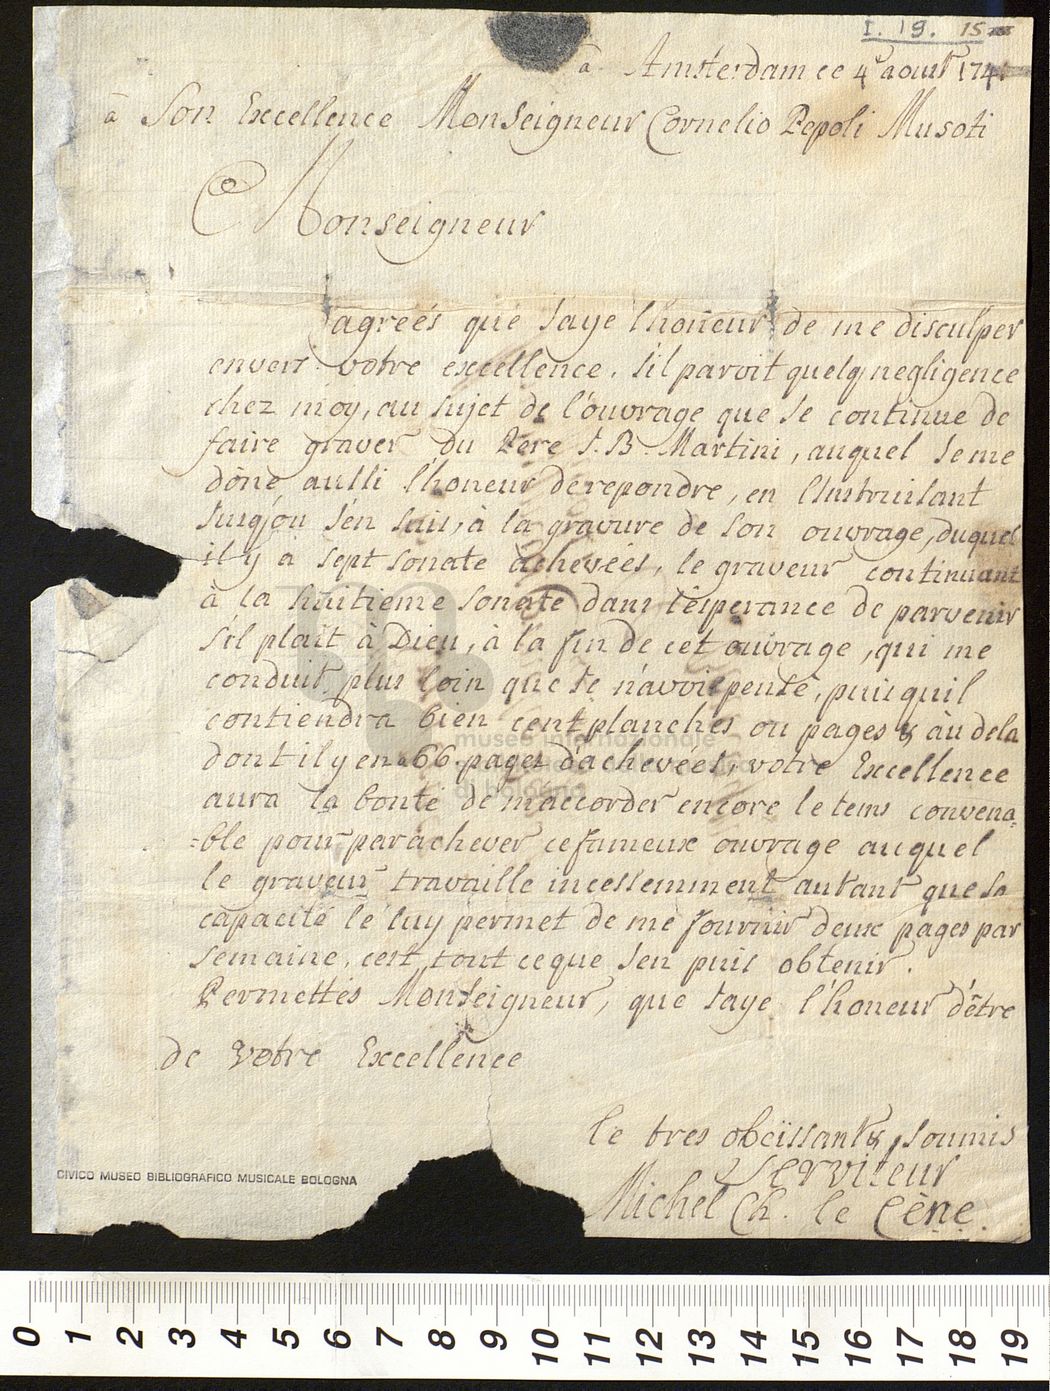 I. 19. 15
â Amsterdam ce 4e aout 174
â Son Excellence Monseigneur Cornelio Pepoli Musoti
Monseigneur
agreés que Jaye l'honeur de me disculper
envers votre excellence, s'il paroit quelq negligence
chez moy, au sujet de l'ouvrage que Je continue de
faire graver du Pere J. B. Martini, auquel Je me
dône aussi l'honeur de repondre, en l'Instruisant
Jusq'ou J'en suis, à la gravure de son ouvrage, duquel
il y à sept sonate àchevées, le graveur continuant
à la huitieme sonate dans l'esperance de parvenir
s'il plait à Dieu, à la fin de cet ouvrage, qui me
conduit plus loin que Je n'avois pensé, puisquil
contiendra bien cent planches ou pages & àu dela
dont il y en a 66. pages d'achevees, votre Excellence
aura la bonté de m'accorder encore le tems convena=
=ble pour parachever ce fameux ouvrage auquel
le graveur travaille incessemment autant que sa
capacité le luy permet de me fournir deux pages par
semaine, cest tout ce que J'en puis obtenir.
Permettés Monseigneur, que Jaye l'honeur d'être
de Votre Excellence
le tres obeissant & soumis
serviteur
Michel Ch. le Cène.
museo internazionale
di bologna
CIVICO MUSEO BIBLIOGRAFICO MUSICALE BOLOGNA
0 1 2 3 4 5 6 7 8 9 10 11 12 13 14 15 16 17 18 19